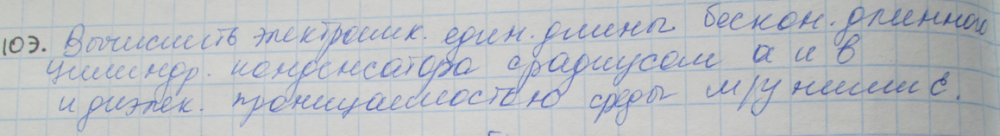 10э. Вычислить электроемк. един. длины бескон. длинного
цилиндр. конденсатора с радиусом а и в
и диэлек. проницаемостью среды м/у ними ε.